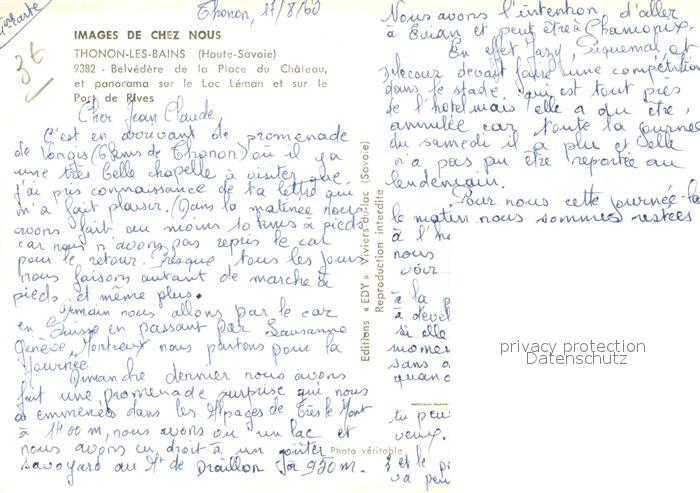 1ère carte
Thonon, 17/8/60
36
IMAGES DE CHEZ NOUS
THONON-LES-BAINS (Haute-Savoie)
9382 - Belvédère de la Place du Château,
et panorama sur le Lac Léman et sur le
Port de Rives
Cher Jean Claude,
C'est en arrivant de promenade
de Vongis (6 kms de Thonon) où il y a
une très belle chapelle à visiter que
j'ai pris connaissance de ta lettre qui
m'a fait plaisir. (Dans la matinée nous
avons fait au moins 10 kms à pieds
car nous n'avons pas repris le car
pour le retour. Presque tous les jours
nous faisons autant de marche à
pieds et même plus.
Demain nous allons par le car
en Suisse en passant par Lausanne
Genève, Montreux nous partons pour la
journée.
Dimanche dernier nous avons
fait une promenade surprise qui nous
a emmenés dans les Alpages de Très le Mont
à 1400 m, nous avons vu un lac et
nous avons eu droit à un goûter
savoyard au Mt de Draillon à 950 m.
Editions « EDY » Viviers-du-lac (Savoie)
Reproduction interdite
Photo véritable
Nous avons l'intention d'aller
à Evian et peut être à Chamonix.
En effet Jazy, Piquemal, et
Delecour devait faire une compétition
dans le stade qui est tout près
de l'hotel mais elle a du être
annulée car toute la journée
du samedi il a plu et elle
n'a pas pu être reportée au
lendemain.
Pour nous cette journée-là
le matin nous sommes restées
à l'h
nous
voir
à la p
à devel
si elle
momen
sans a
quand
tu peu
veux.
et le p
va peu
privacy protection
Datenschutz